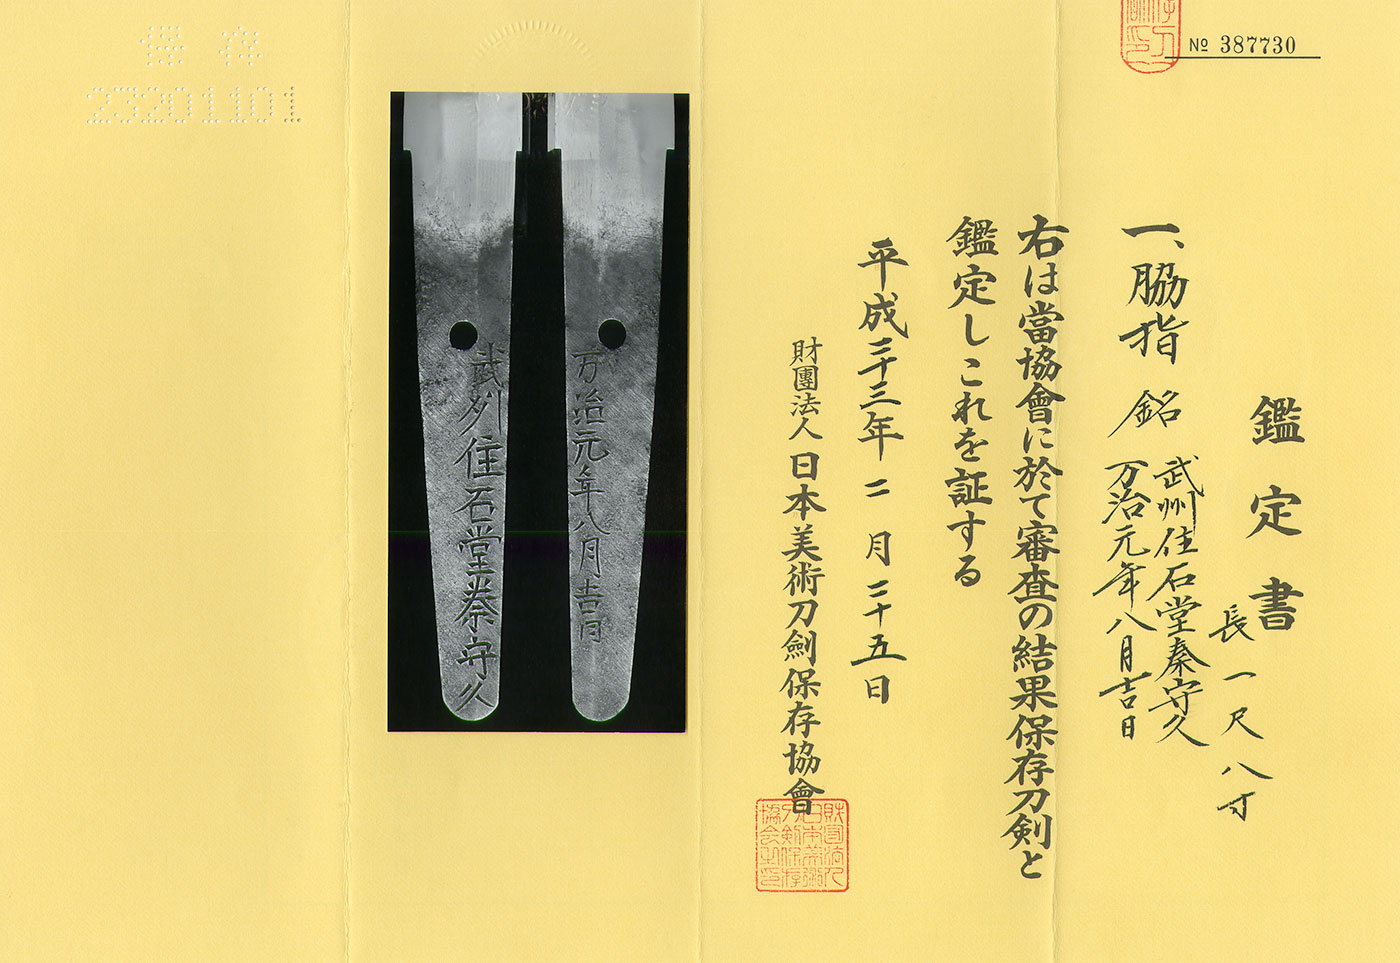 № 387730
鑑定書
一、脇指 銘 武州住石堂秦守久
万治元年八月吉日
長一尺八寸
右は當協會に於て審査の結果保存刀剣と
鑑定しこれを証する
平成二十三年二月二十五日
財團法人日本美術刀劍保存協會
保存
23201101
武州住石堂秦守久
万治元年八月吉日